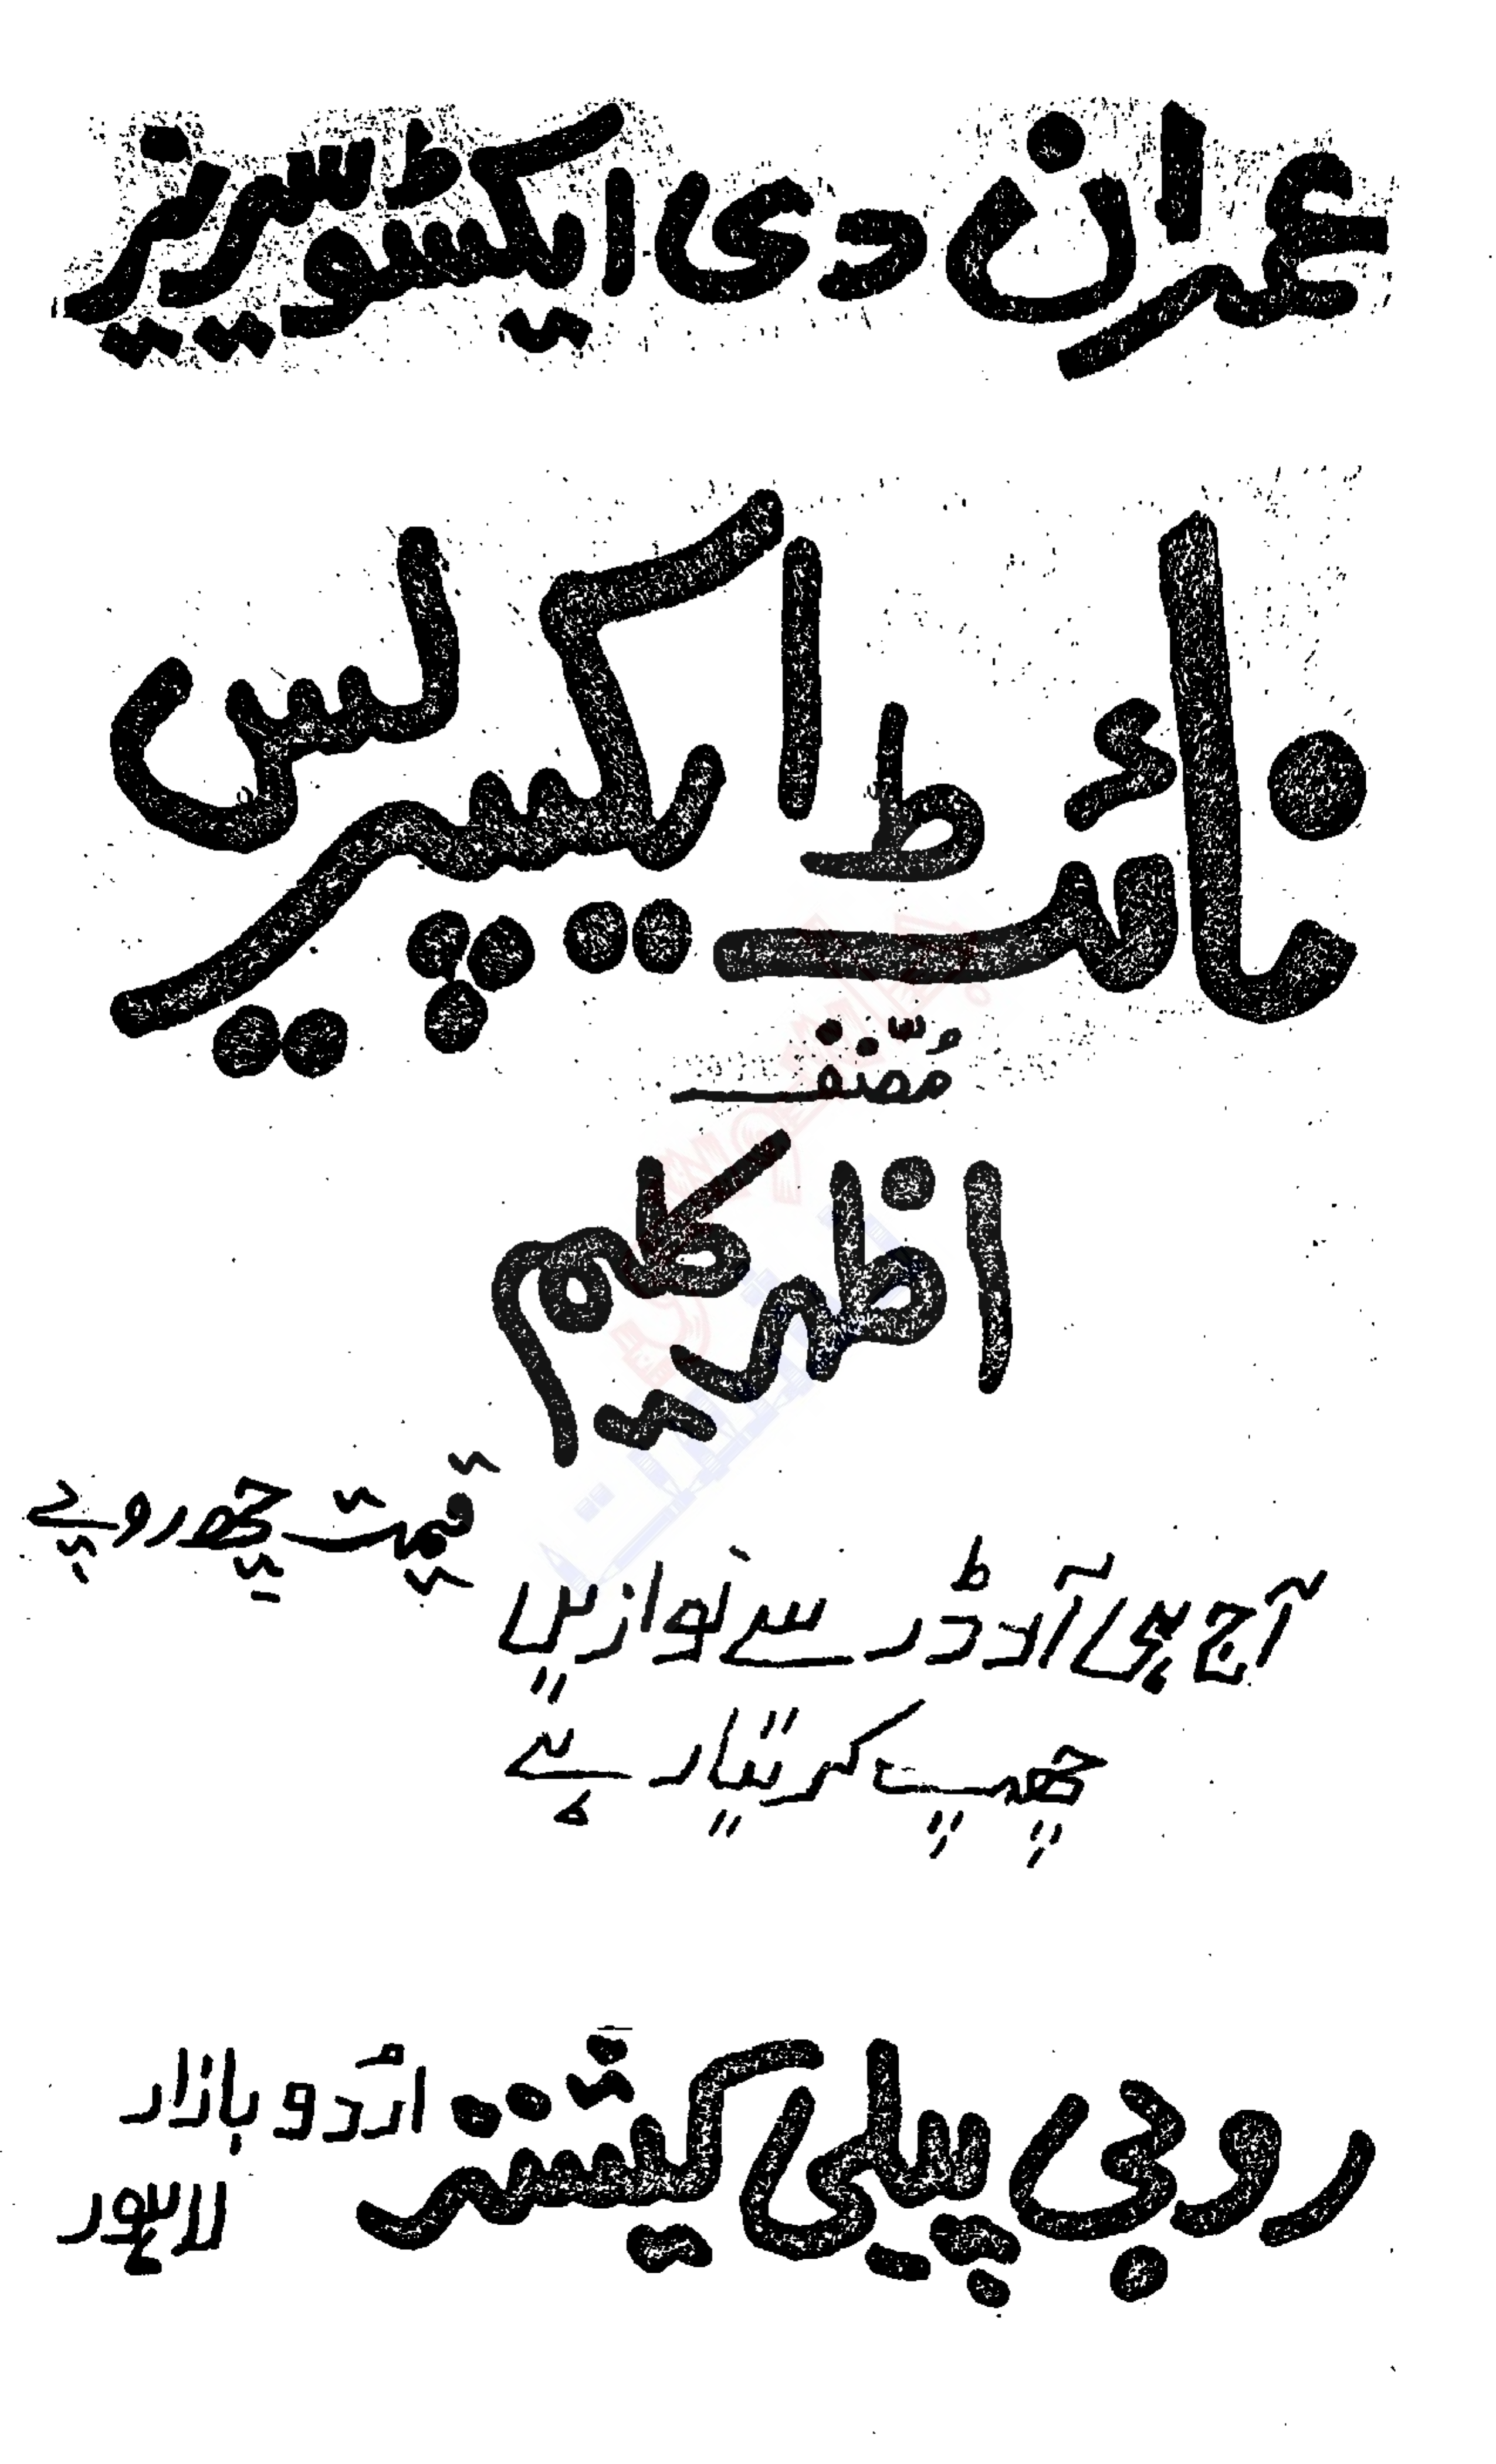 عمران دی ایکسٹو سیریز
نائٹ ایکسپریس
مُصنّف
اظہر کلیم
قیمت چھ روپے
آج ہی آرڈر سے نوازیں
چھپ کر تیار ہے
روبی پبلی کیشنز اُردو بازار
لاہور